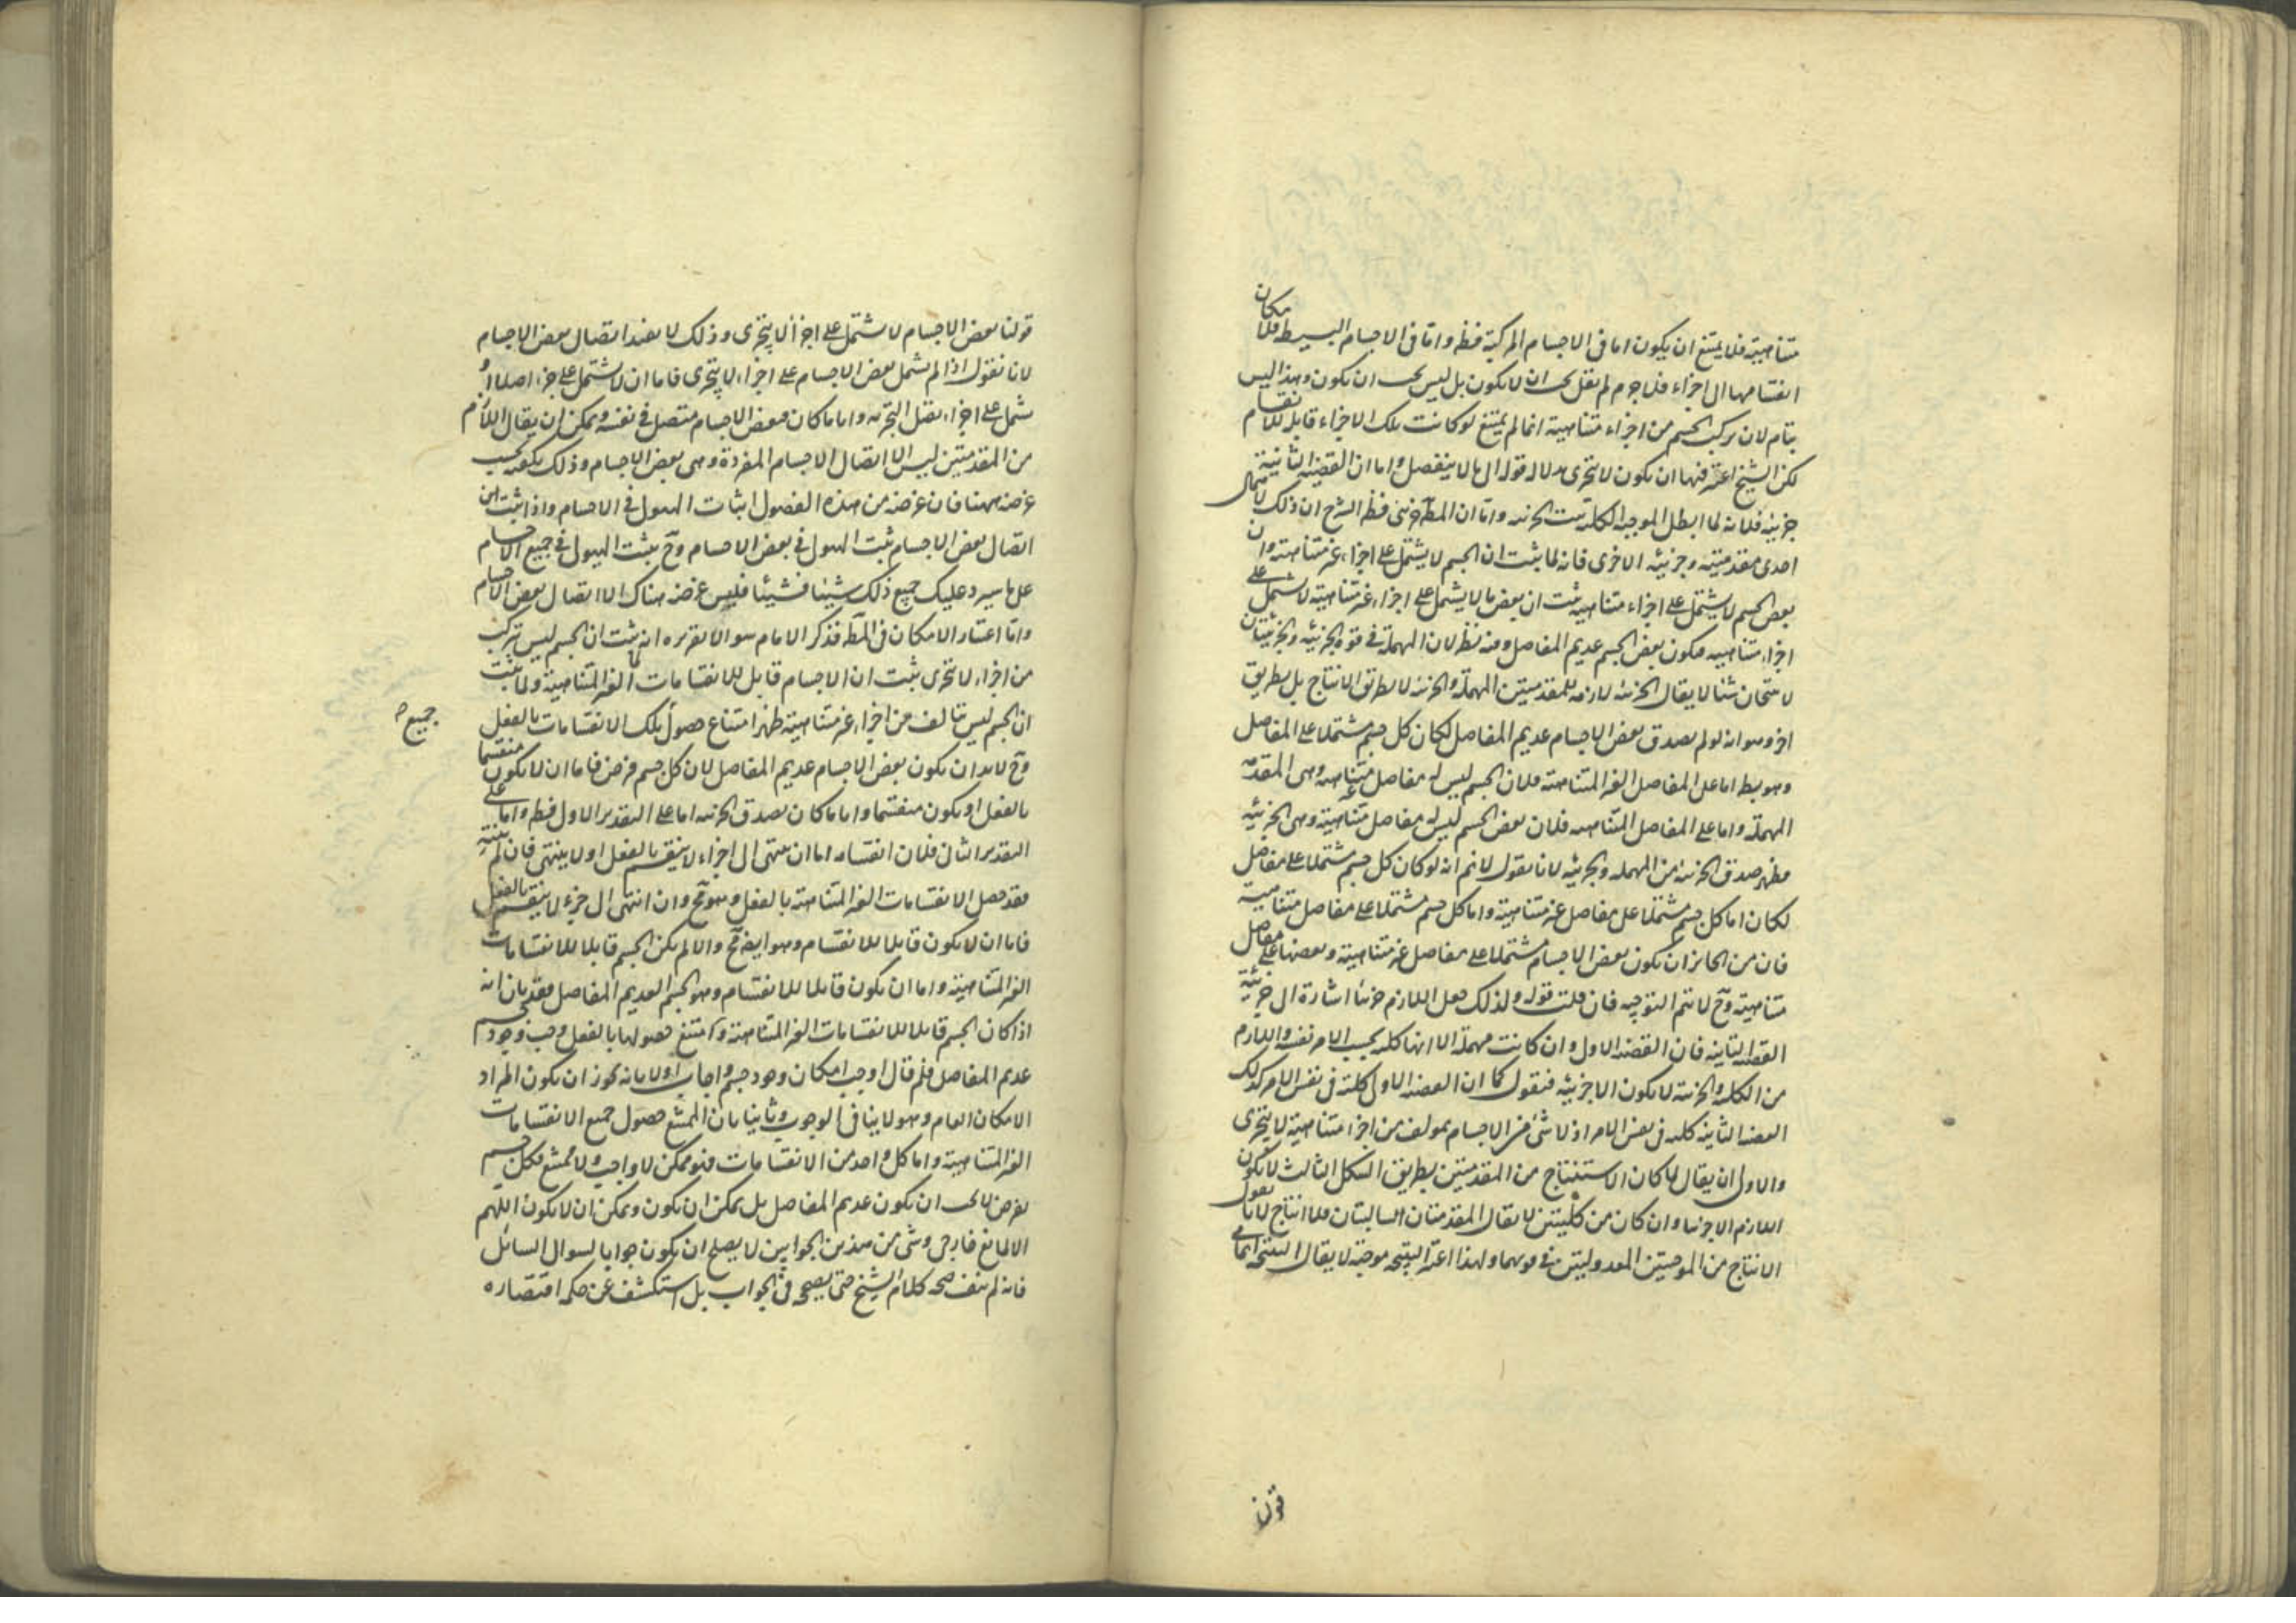 متناهية فلا يمتنع ان يكون اما فى الاجسام المركبة فظ واما فى الاجسام البسيطة فلامكان
انقسامها الى اجزاء فلا جرم لم يقل يجب ان لا يكون بل ليس يجب ان يكون وهذا ليس
بتام لان تركب الجسم من اجزاء متناهية انما لم يمتنع لو كانت تلك الاجزاء قابلة للانقسام
لكن الشيخ اعتبر فيها ان يكون لا تتجزى بدلالة قوله الى ما لا ينفصل واما ان القضية الثانية
جزئية فلانه لما ابطل الموجبة الكلية ثبت الجزئية واما ان المط جزئى فظ الشرح ان ذلك لاهمال
احدى مقدمتيه وجزئية الاخرى فانه لما ثبت ان الجسم لا يشتمل على اجزاء غير متناهية وان
بعض الجسم لا يشتمل على اجزاء متناهية ثبت ان بعض ما لا يشتمل على اجزاء غير متناهية لا يشتمل على
اجزاء متناهية فيكون بعض الجسم عديم المفاصل وفيه نظر لان المهملة فى قوة الجزئية والجزئيتان
لا تنتجان شيئا لا يقال الجزئية لازمة للمقدمتين المهملة والجزئية لا بطريق الانتاج بل بطريق
اخر وهو انه لو لم يصدق بعض الاجسام عديم المفاصل لكان كل جسم مشتملا على المفاصل
وهو بط اما على المفاصل الغير المتناهية فلان الجسم ليس له مفاصل غير متناهية وهى المقدمة
المهملة واما على المفاصل المتناهية فلان بعض الجسم ليس له مفاصل متناهية وهى الجزئية
فظهر صدق الجزئية من المهملة والجزئية لانا نقول لا نم انه لو كان كل جسم مشتملا على مفاصل
لكان اما كل جسم مشتملا على مفاصل غير متناهية واما كل جسم مشتملا على مفاصل متناهية
فان من الجائز ان يكون بعض الاجسام مشتملا على مفاصل غير متناهية وبعضها على مفاصل
متناهية وح لا يتم التوجيه فان قلت قوله ولذلك جعل اللازم جزئيا اشارة الى جزئية
القضية الثانية فان القضية الاولى وان كانت مهملة الا انها كلية بحسب الامر نفسه واللازم
من الكلية والجزئية لا يكون الا جزئية فنقول كما ان القضية الاولى كلية فى نفس الامر كذلك
القضية الثانية كلية فى نفس الامر اذ لا شئ من الاجسام بمولف من اجزاء متناهية لا يتجزى
والاولى ان يقال لما كان الاستنتاج من المقدمتين بطريق الشكل الثالث لا يكون
اللازم الا جزئيا وان كان من كليتين لا يقال المقدمتان سالبتان فلا انتاج لانا نقول
الانتاج من الموجبتين المعدولتين فى قوتهما ولهذا اعتبر النتيجة موجبة لا يقال النتيجة انما هى
قولنا
قولنا بعض الاجسام لا يشتمل على اجزاء لا يتجزى وذلك لا يفيد اتصال بعض الاجسام
لانا نقول اذا لم يشتمل بعض الاجسام على اجزاء لا يتجزى فاما ان لا يشتمل على جزء اصلا او
يشتمل على اجزاء يقبل التجزية واياما كان فبعض الاجسام متصل فى نفسه ويمكن ان يقال اللازم
من المقدمتين ليس الا اتصال الاجسام المفردة وهى بعض الاجسام وذلك يكفيه بحسب
غرضه ههنا فان غرضه من هذه الفصول اثبات الهيولى فى الاجسام واذا ثبت ان
اتصال بعض الاجسام ثبت الهيولى فى بعض الاجسام وح يثبت الهيولى فى جميع الاجسام
على ما سيرد عليك جميع ذلك شيئا فشيئا فليس غرضه هناك الا اتصال بعض الاجسام
واما اعتبار الامكان فى المط فذكر الامام سوالا تقريره انه ثبت ان الجسم ليس يتركب
من اجزاء لا تتجزى ثبت ان الاجسام قابل للانقسامات الغير المتناهية ولما ثبت
ان الجسم ليس يتالف من اجزاء غير متناهية ظهر امتناع حصول تلك الانقسامات بالفعل
جميع
وح لا بد ان يكون بعض الاجسام عديم المفاصل لان كل جسم فرض فاما ان لا يكون منقسما
بالفعل او يكون منقسما واياما كان يصدق الجزئية اما على التقدير الاول فظ واما على
التقدير الثانى فلان انقسامه اما ان ينتهى الى اجزاء لا ينقسم بالفعل او لا ينتهى فان لم ينته
فقد حصل الانقسامات الغير المتناهية بالفعل وهو مح وان انتهى الى جزء لا ينقسم بالفعل
فاما ان لا يكون قابلا للانقسام وهو ايض مح والا لم يكن الجسم قابلا للانقسامات
الغير المتناهية واما ان يكون قابلا للانقسام وهو الجسم العديم المفاصل فقد بان انه
اذا كان الجسم قابلا للانقسامات الغير المتناهية وامتنع حصولها بالفعل وجب وجود جسم
عديم المفاصل فلم قال اوجب امكان وجود جسم واجاب اولا بانه يجوز ان يكون المراد
الامكان العام وهو لا ينافى الوجوب وثانيا بان الممتنع حصول جميع الانقسامات
الغير المتناهية واما كل واحد من الانقسامات فهو ممكن لا واجب ولا ممتنع فكل جسم
يفرض لا يجب ان يكون عديم المفاصل بل يمكن ان يكون ويمكن ان لا يكون اللهم
الا لمانع خارجى وشئ من هذين الجوابين لا يصلح ان يكون جوابا لسوال السائل
فانه لم ينف صحة كلام الشيخ حتى يصححه فى الجواب بل استكشف عن حكمة اقتصاره